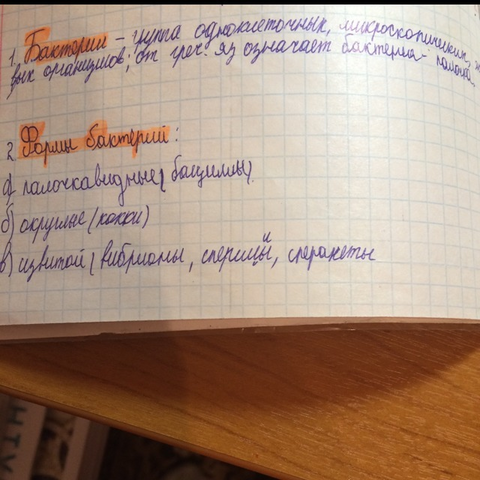 1. Бактерии - группа одноклеточных, микроскопических, жи
вых организмов; от греч. яз означает бактерия - палочка
2 Формы бактерий:
а) палочкавидные (бациллы)
б) округлые (кокки)
в) извитой (вибрионы, сперицы, сперахеты
и
НТУ